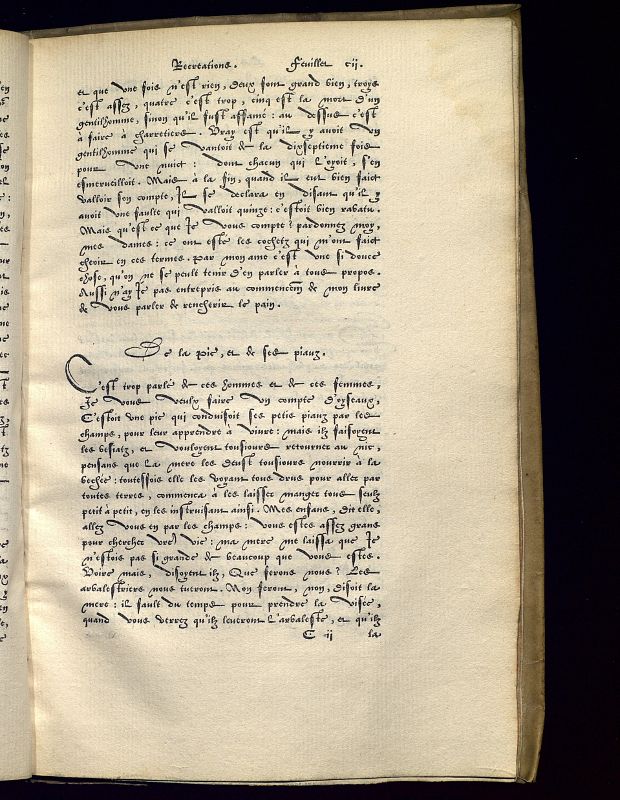 Recreations. Feuillet cij.
et que une fois n'est rien, deux font grand bien, troys
c'est assez, quatre c'est trop, cinq est la mort d'un
gentilhomme, sinon qu'il fust affamé: au dessus c'est
à faire à charretiers. Vray est qu'il y avoit un
gentilhomme qui se vantoit de la dixseptieme fois
pour une nuict: dont chacun qui l'oyoit, s'en
esmerveilloit. Mais à la fin, quand il eut bien faict
valloir son compte, Il se declara en disant qu'il y
avoit une faulte qui valloit quinze: c'estoit bien rabatu.
Mais qu'est ce que Je vous compte? pardonnez moy,
mes dames: ce ont esté les cochetz qui m'ont faict
cheoir en ces termes. Par mon ame c'est une si douce
chose, qu'on ne se peult tenir d'en parler à tous propos.
Aussi n'ay Je pas entrepris au commencem̃ de mon livre
de vous parler de rencherir le pain.
De la Pie, et de ses piauz.
C'est trop parlé de ces hommes et de ces femmes,
Je vous veulx faire un compte d'oyseaux,
C'estoit une pie qui conduisoit ses petis piauz par les
champs, pour leur apprendre à vivre: mais ilz faisoyent
les besiatz, et vouloyent tousiours retourner au nic,
pensans que la mere les deust tousiours nourrir à la
bechee: toutesfois elle les voyant tous drus pour aller par
toutes terres, commenca à les laisser manger tous seulz
petit à petit, en les instruisant ainsi. Mes enfans, dit elle,
allez vous en par les champs: vous estes assez grans
pour chercher vr̃e vie: ma mere me laissa que Je
n'estois pas si grande de beaucoup que vous estes.
Voire mais, disoyent ilz, Que ferons nous? Les
arbalestriers nous tueront. Non feront, non, disoit la
mere: il fault du temps pour prendre la visee,
quand vous verrez qu'ilz leveront l'arbaleste, et qu'ilz
C ii la